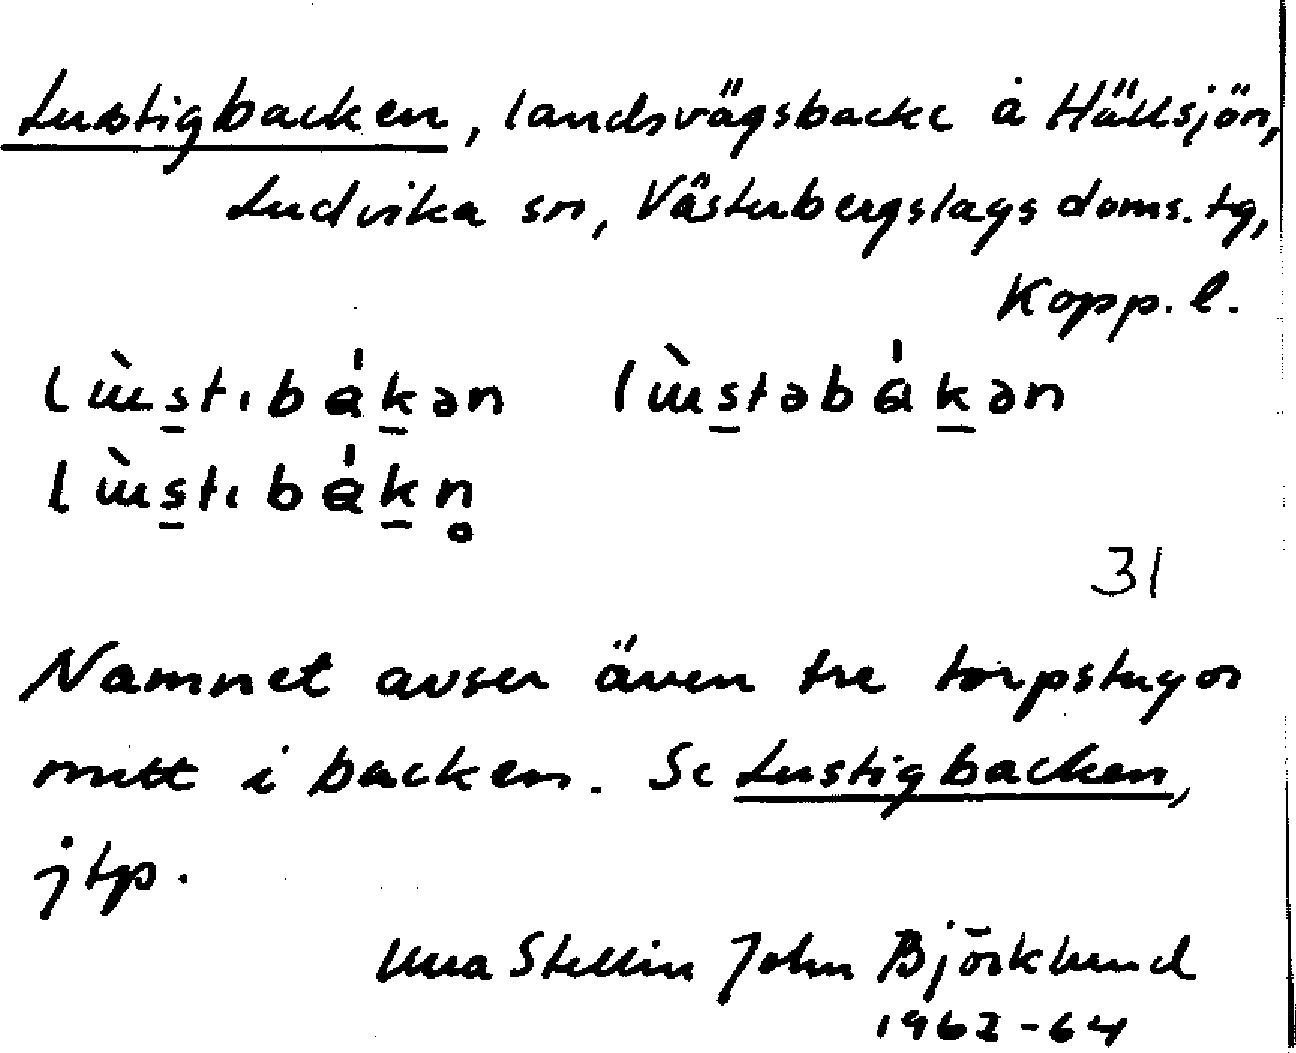 Lustigbacken, landsvägsbacke å Hällsjön,
Ludvika sn, Västerbergslags doms. tg,
Kopp. l.
lɯ̀stıbákən lɯ̀stəbákən
lɯ̀stıbákn̥
31
Namnet avser även tre torpstugor
mitt i backen. Se Lustigbacken,
jtp.
Stellin John Björklund
1962-64